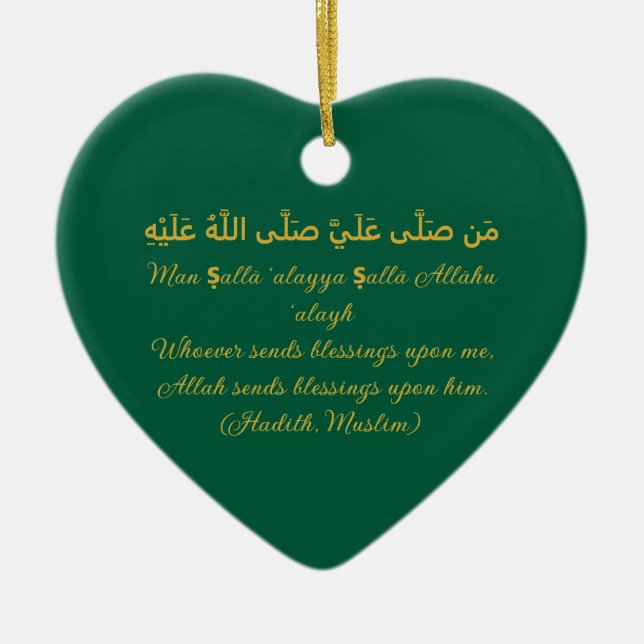 مَن صَلَّى عَلَيَّ صَلَّى اللَّهُ عَلَيْهِ
Man Ṣallā ‘alayya Ṣallā Allāhu
‘alayh
Whoever sends blessings upon me,
Allah sends blessings upon him.
(Hadith, Muslim)